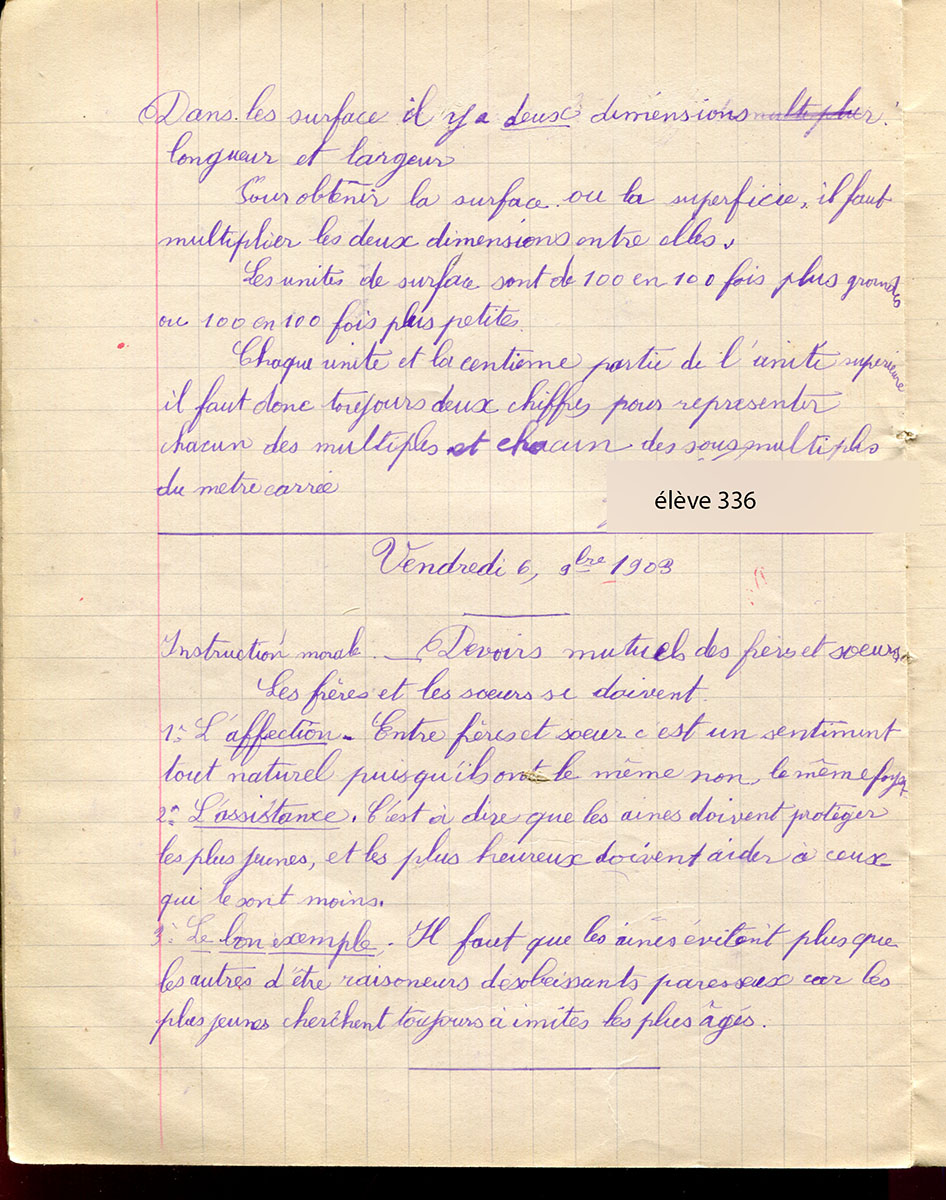 Dans les surface il y a deux dimensions multiplier
longueur et largeur
Pour obtenir la surface ou la superficie, il faut
multiplier les deux dimensions entre elles.
Les unités de surface sont de 100 en 100 fois plus grandes
ou 100 en 100 fois plus petites.
Chaque unité et la centieme partie de l'unité superieure
il faut donc toujours deux chiffres pour representer
chacun des multiples et chacun des sous multiples
du metre carrée
élève 336
Vendredi 6, 9bre 1903
Instruction morale. — Devoirs mutuels des frères et soeurs
Les frères et les soeurs se doivent.
1º L'affection. Entre frères et soeur c'est un sentiment
tout naturel puisqu'ils ont le même non, le même foyer
2º L'assistance. C'est à dire que les aines doivent protéger
les plus jeunes, et les plus heureux doivent aider à ceux
qui le sont moins.
3º Le bon exemple. Il faut que les aînés évitent plus que
les autres d'être raisoneurs desobeissants paresseux car les
plus jeunes cherchent toujours à imites les plus âgés.